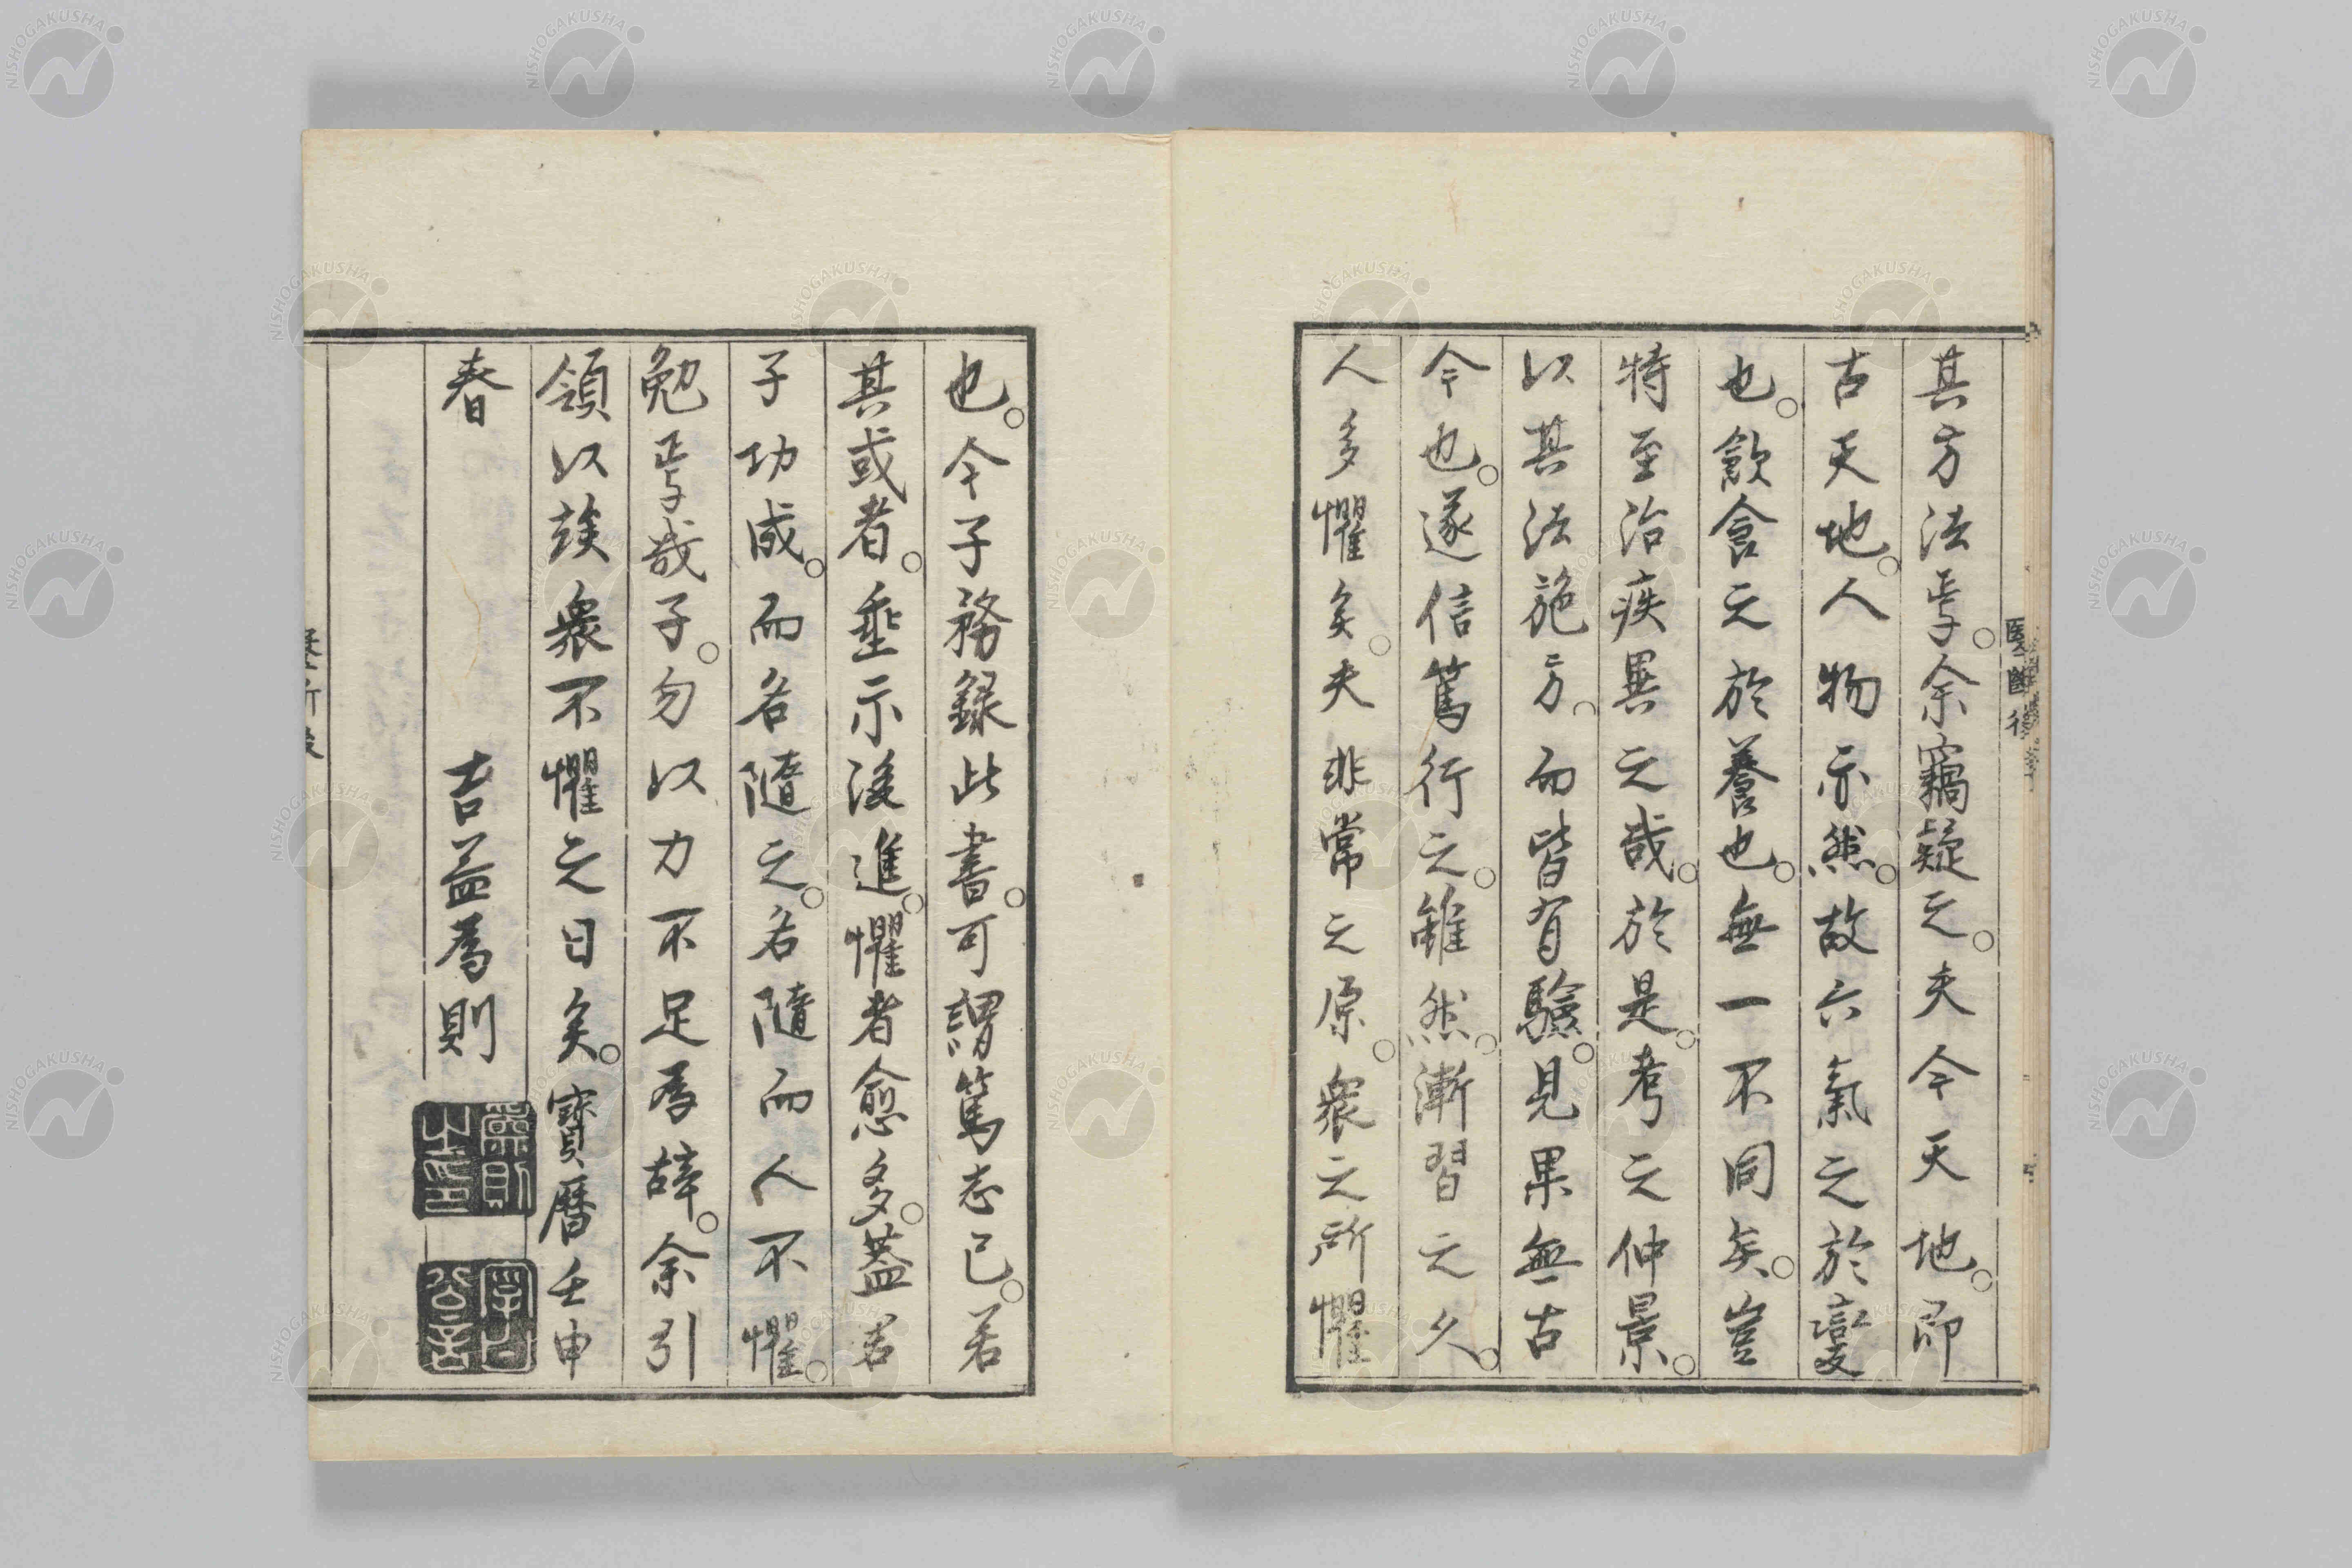 其方法焉。余竊疑之。夫今天地。即
古天地。人物亦然。故六氣之於變
也。飲食之於養也。無一不同矣。豈
特至治疾異之哉。於是。考之仲景。
以其法施方。而皆有驗。見果無古
今也。遂信篤行之。雖然。漸習之久。
人多懼矣。夫非常之原。衆之所懼
也。今子務錄此書。可謂篤志已。若
其或者。垂示後進。懼者愈多。蓋若
子功成。而名隨之。名隨而人不懼。
勉焉哉子。勿以力不足爲辭。余引
領以竢衆不懼之日矣。寶曆壬申
春 吉益爲則
爲則之印
NISHOGAKUSHA